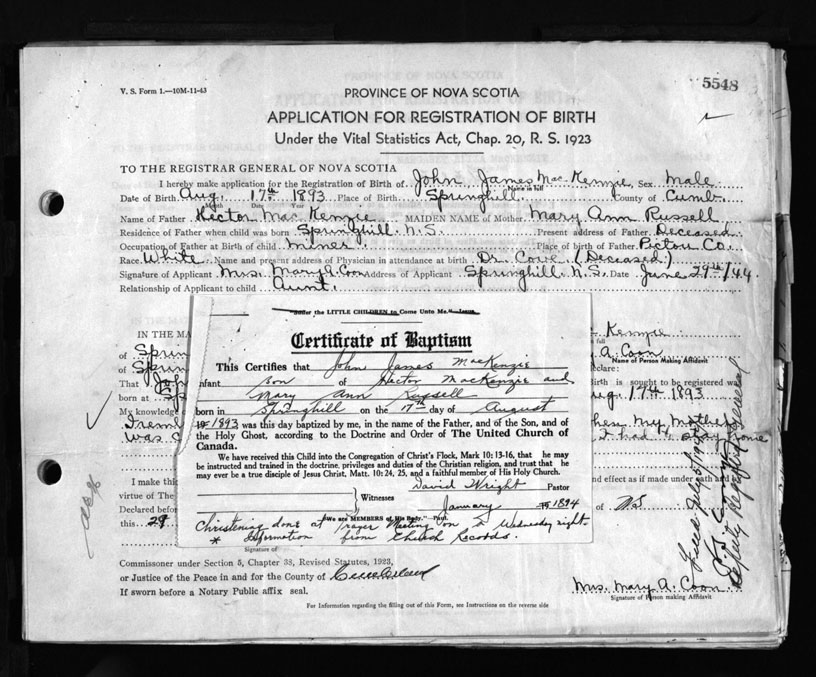 5548
V. S. Form 1.—10M-11-43
PROVINCE OF NOVA SCOTIA
APPLICATION FOR REGISTRATION OF BIRTH
Under the Vital Statistics Act, Chap. 20, R. S. 1923
TO THE REGISTRAR GENERAL OF NOVA SCOTIA
I hereby make application for the Registration of Birth of John James MacKenzie, Sex Male
Name in full
Date of Birth Aug. 17th 1893 Place of Birth Springhill County of Cumb.
Month Day Year
Name of Father Hector MacKenzie MAIDEN NAME of Mother Mary Ann Russell
Residence of Father when child was born Springhill. N.S. Present address of Father Deceased
Occupation of Father at Birth of child miner Place of birth of Father Pictou Co.
Race White Name and present address of Physician in attendance at birth Dr. Cove. (Deceased)
Signature of Applicant Mrs. Mary A. Coon Address of Applicant Springhill. N.S. Date June 29th/44
Relationship of Applicant to child Aunt.
Suffer the LITTLE CHILDREN to Come Unto Me."—Jesus.
Certificate of Baptism
This Certifies that John James MacKenzie
infant son of Hector MacKenzie and
Mary Ann Russell
born in Springhill on the 17th day of August
19 1893 was this day baptized by me, in the name of the Father, and of the Son, and of
the Holy Ghost, according to the Doctrine and Order of The United Church of
Canada.
We have received this Child into the Congregation of Christ's Flock, Mark 10: 13-16, that he may
be instructed and trained in the doctrine, privileges and duties of the Christian religion, and trust that he
may ever be a true disciple of Jesus Christ, Matt. 10: 24, 25, and a faithful member of His Holy Church.
David Wright Pastor
Witnesses January 19 1894
"We are MEMBERS of His Body."
Christening done at Prayer Meeting on a Wednesday night
* Information from Church Records.
IN THE MA
of Sprin
of Sprin
That John
born at Sp
My knowledge
I rem
Was
I make thi
virtue of The
Declared before
this 29
Kenzie
full
A. Coon
Name of Person making Affidavit
eclare:
Birth is sought to be registered was
Aug. 17th 1893
when my Mother
I had
and effect as if made under oath and
of N.S.
Signature of
Commissioner under Section 5, Chapter 38, Revised Statutes, 1923,
or Justice of the Peace in and for the County of Cumberland
If sworn before a Notary Public affix seal.
Mrs. Mary A. Coon
Signature of Person making Affidavit
For Information regarding the filling out of this Form, see Instructions on the reverse side
Deputy Registrar General